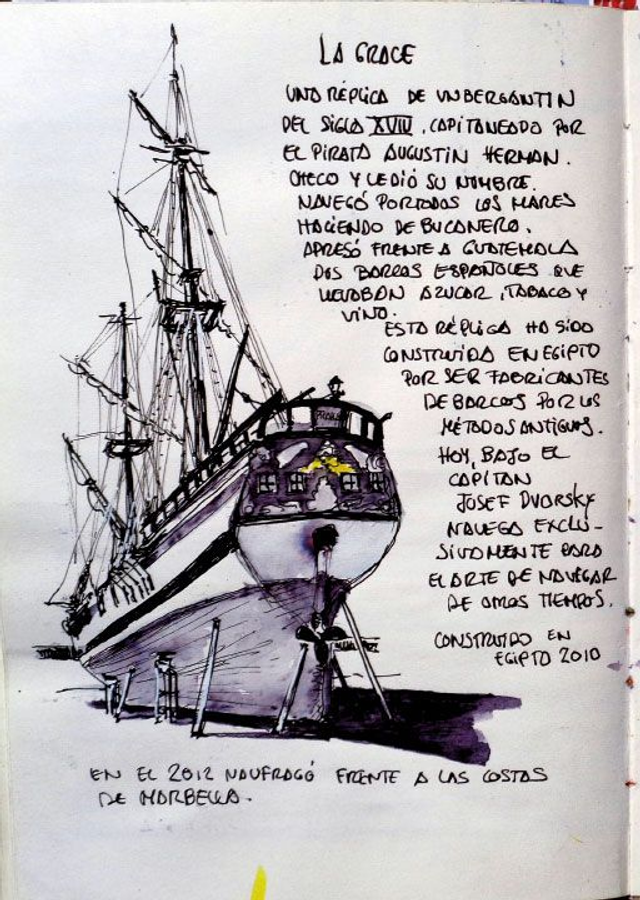 LA GRACE
UNA RÉPLICA DE UN BERGANTIN
DEL SIGLO XVIII, CAPITANEADO POR
EL PIRATA AUGUSTIN HERMAN.
CHECO Y LE DIÓ SU NOMBRE.
NAVEGÓ POR TODOS LOS MARES
HACIENDO DE BUCANERO.
APRESÓ FRENTE A GUATEMALA
DOS BARCOS ESPAÑOLES QUE
LLEVABAN AZUCAR, TABACO Y
VINO.
ESTA RÉPLICA HA SIDO
CONSTRUIDA EN EGIPTO
POR SER FABRICANTES
DE BARCOS POR LOS
MÉTODOS ANTIGUOS.
HOY, BAJO EL
CAPITAN
JOSEF DVORSKY
NAVEGA EXCLU-
SIVAMENTE PARA
EL ARTE DE NAVEGAR
DE OTROS TIEMPOS.
CONSTRUIDO EN
EGIPTO 2010
EN EL 2012 NAUFRAGÓ FRENTE A LAS COSTAS
DE MARBELLA.